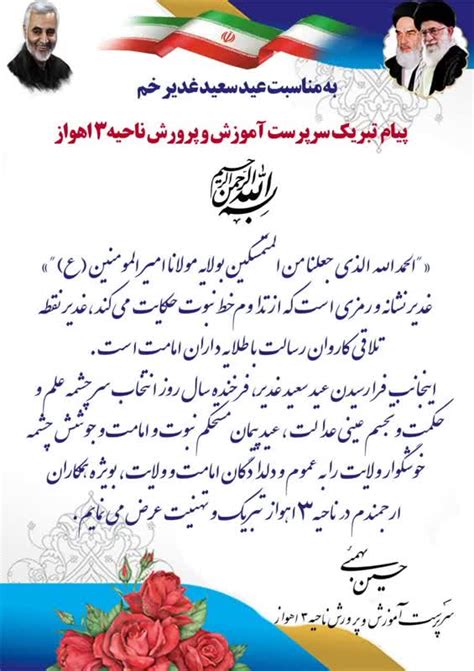 به مناسبت عید سعید غدیر خم
پیام تبریک سرپرست آموزش و پرورش ناحیه ۳ اهواز
بسم الله الرحمن الرحیم
« "الحمدالله الذی جعلنا من المتمسکین بولایه مولانا امیرالمومنین (ع) "»
غدیر نشانه و رمزی است که از تداوم خط نبوت حکایت می کند، غدیر نقطه
تلاقی کاروان رسالت با طلایه داران امامت است.
اینجانب فرارسیدن عید سعید غدیر، فرخنده سال روز انتخاب سرچشمه علم و
حکمت و تجسم عینی عدالت، عید پیمان مستحکم نبوت و امامت و جوشش چشمه
خوشگوار ولایت را به عموم و دلدادگان امامت و ولایت، بویژه همکاران
ارجمندم در ناحیه ۳ اهواز تبریک و تهنیت عرض می نمایم.
حسین بهمئی
سرپرست آموزش و پرورش ناحیه ۳ اهواز